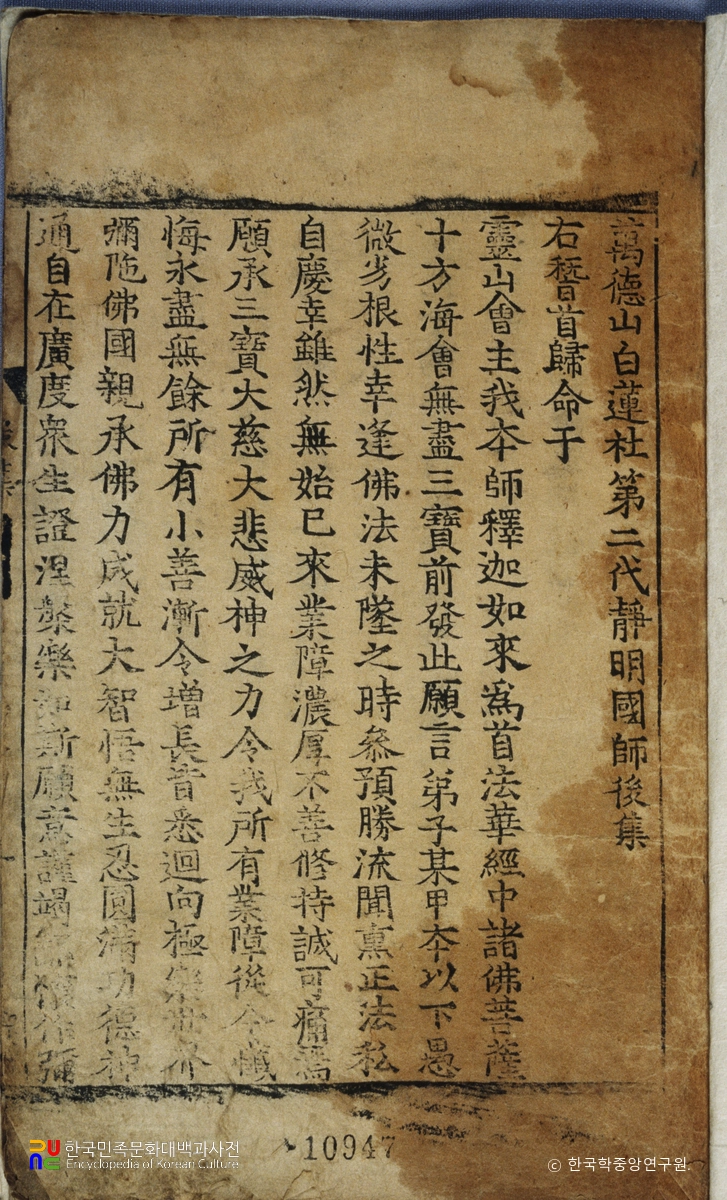 萬德山白蓮社第二代靜明國師後集
右稽首歸命于
靈山會主我本師釋迦如來爲首法華經中諸佛菩薩
十方海會無盡三寶前發此願言弟子某甲本以下愚
微劣根性幸逢佛法未墜之時叅預勝流聞熏正法私
自慶幸雖然無始已來業障濃厚不善修持誠可痛焉
願承三寶大慈大悲威神之力令我所有業障從今懺
悔永盡無餘所有小善漸令增長皆悉迴向極樂世界
彌陁佛國親承佛力成就大智悟無生忍圓滿功德神
通自在廣度衆生證涅槃樂如斯願意謹竭 作彌
한국민족문화대백과사전
Encyclopedia of Korean Culture
10947
ⓒ 한국학중앙연구원.